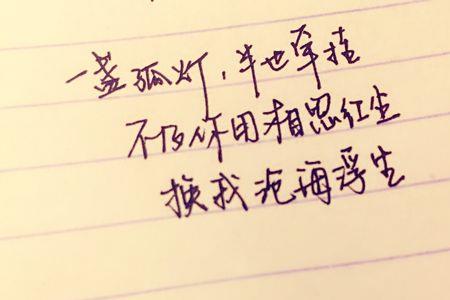 一盏孤灯，半世牵挂
不及你用相思红尘
换我沧海浮尘